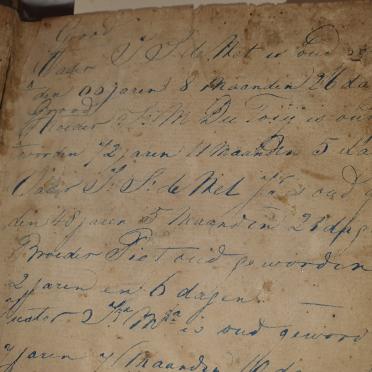 Groot
Vader J. S. de Wet is oud
den 00 jaren 8 maanden 26 da
Groot
Moeder S. M. Du Toit is oud
worden 72 jaren 11 maanden 5 da
Vader J. S. de Wet is oud g
den 48 jaren 5 maanden 26 dag
Broeder Piet oud geworden
2 jaren en 6 dagen
uster is oud geword
jaren 7 maanden 16 da